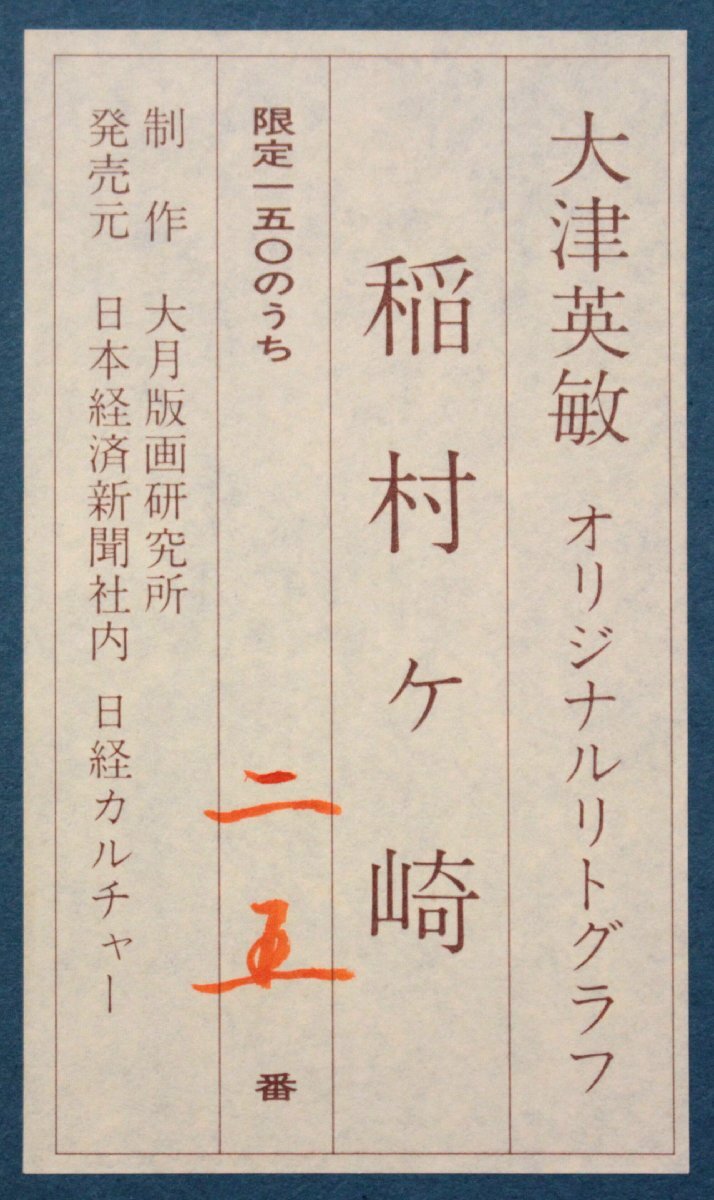 大津英敏 オリジナルリトグラフ
稲村ヶ崎
限定一五〇のうち 二五 番
制作 大月版画研究所
発売元 日本経済新聞社内 日経カルチャー